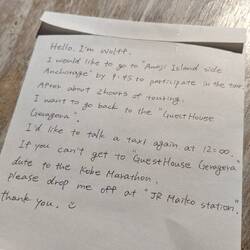 Hello. I'm Wolff.
I would like to go to "Awaji Island side
Anchorage" by 9:45 to participate in the tour.
After about 2hours of touring.
I want to go back to the "GuestHouse
Geragera".
I'd like to talk a taxi again at 12:00.
If you can't get to "GuestHouse Geragera"
due to the Kobe Marathon,
please drop me off at "JR Maiko station".
thank you. ☺